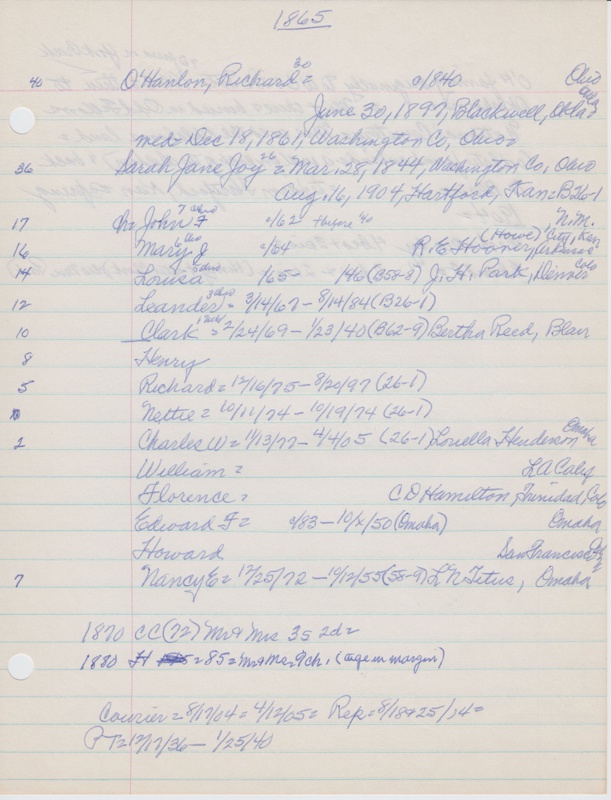 1865
40 O'Hanlon, Richard 30 = a1840 Ohio
June 30, 1897, Blackwell, Okla
med- Dec 18, 1861, Washington Co, Ohio=
36 Sarah Jane Joy 26 = Mar. 28, 1844, Washington Co, Ohio
Aug. 16, 1904, Hartford, Kan= B26-1
17 Ch= John F 7 Ohio a/62 + before '40 N.M.
16 Mary J 6 Ohio a/64 R.E. Hooner, (Howe) Arkansas City, Kan
14 Louisa 5 Ohio 1/65- 1/46 (B58-8) J. H. Park, Denver Colo
12 Leander 3 Ohio = 3/14/67 - 8/14/84 (B26-1)
10 Clark = 2/24/69 - 1/23/40 (B62-9) Bertha Reed, Blair
8 Henry
5 Richard = 12/16/75 - 8/20/97 (26-1)
Nettie = 10/11/74 - 10/19/74 (26-1)
2 Charles W = 1/13/77 - 4/4/05 (26-1) Louella Henderson Omaha
William = LA Caly
Florence = C D Hamilton, Trinidad, Colo
Edward F = a/83 - 10/x/50 (Omaha) Omaha
Howard San Francisco
7 Nancy E = 12/25/72 - 10/12/55 (58-9) L N Titus, Omaha
1870 CC (72) Mr & Mrs 3s 2d=
1880 H = 85 = Mr & Mrs 9 ch. (age in margin)
Courier = 8/17/04 = 4/12/05 = Rep = 8/18 & 25/04 =
PT = 12/17/36 - 1/25/40